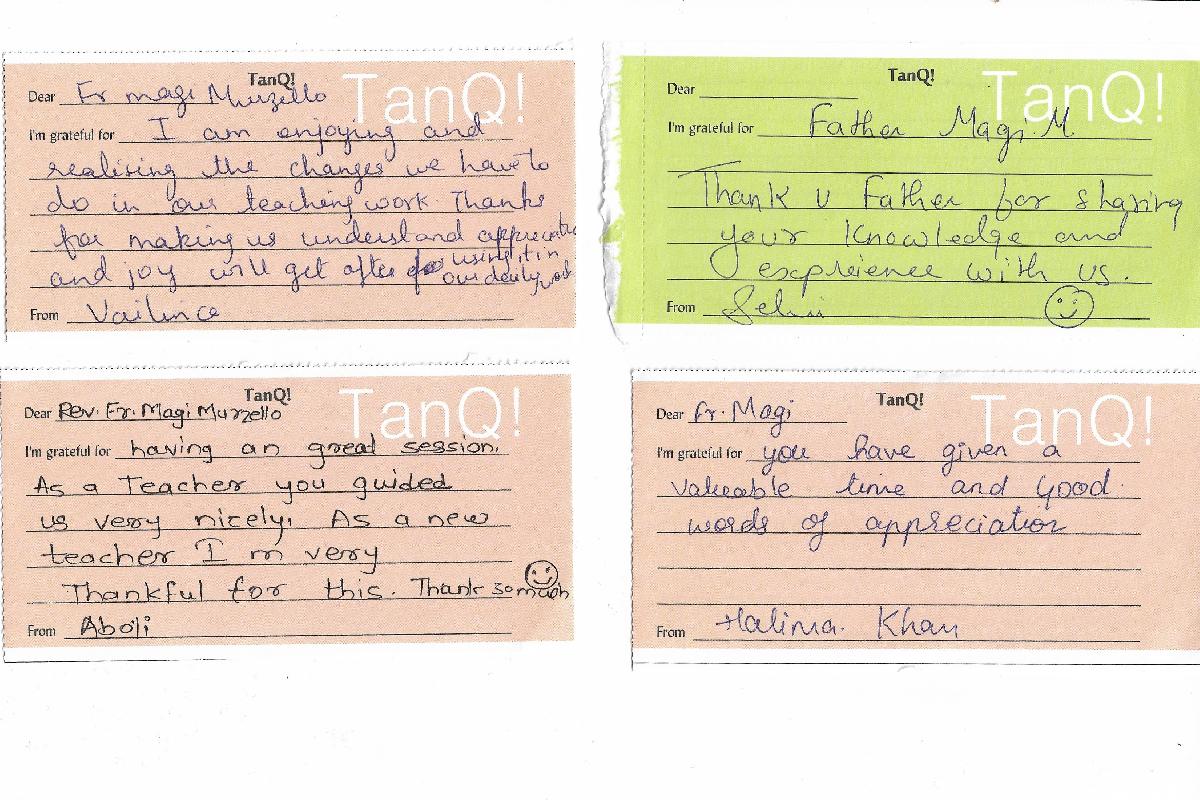 TanQ!
TanQ!
Dear Fr magi Murzello
I'm grateful for I am enjoying and
realising the changes we have to
do in our teaching work. Thanks
for making us understand
and joy will get after using it in
our daily work
From Vailinca
TanQ!
TanQ!
Dear
I'm grateful for Father Magi.M
Thank u Father for sharing
your Knowledge and
expreience with us.
From
TanQ!
TanQ!
Dear Rev. Fr. Magi Murzello
I'm grateful for having an great session.
As a Teacher you guided
us very nicely. As a new
teacher I m very
Thankful for this. Thank so much
From Aboli
TanQ!
TanQ!
Dear Fr. Magi
I'm grateful for you have given a
valueable time and Good.
words of appreciation
From Halima. Khan